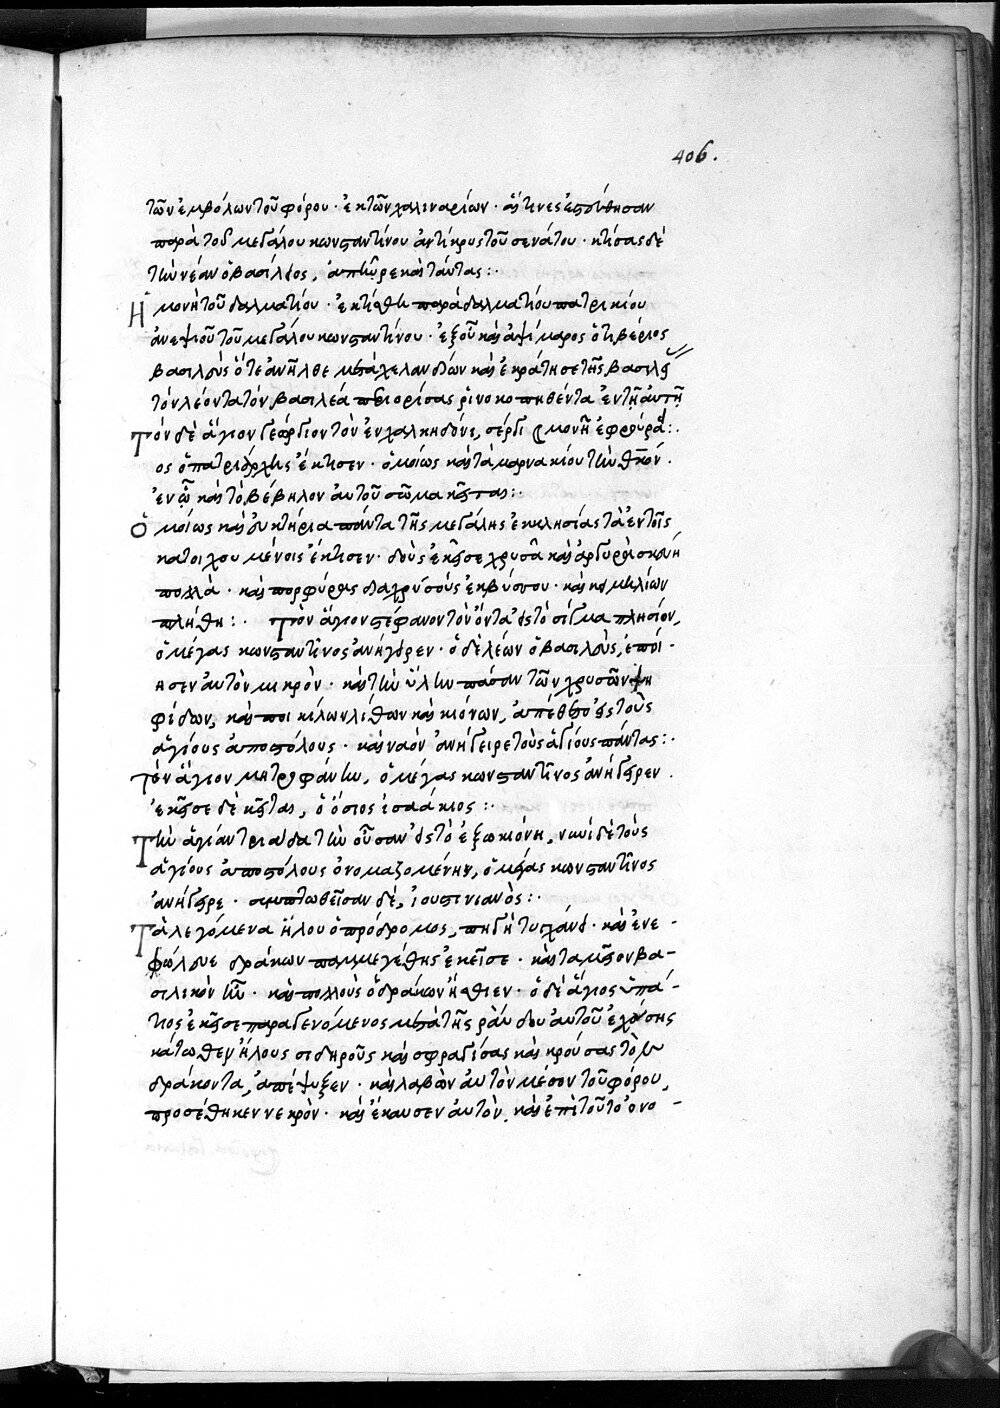 406.
τῶν ἐμβόλων τοῦ φόρου · ἐκ τῶν χαλιναρίων · ἅτινες ἐποίηθησαν
παρὰ τοῦ μεγάλου κωνσταντίνου ἀντίκρυς τοῦ σενάτου · κτήσας δὲ
τὴν νέαν ὁ βασίλειος, ἀπῆρε καὶ ταύτας :·
Ἡ μονὴ τοῦ δαλματίου · ἐκτίσθη παρὰ δαλματίου πατρικίου
ἀνεψιοῦ τοῦ μεγάλου κωνσταντίνου · ἐξ οὗ καὶ ἀψίμαρος ὁ τιβέριος
βασιλεὺς ὅτε ἀνῆλθε καὶ ἐκράτησε τῆς βασιλείας
τὸν λέοντα τὸν βασιλέα περιορίσας ῥινοκοπηθέντα ἐν τῇ αὐτῇ
μονῇ ἐφρουρᾶ :·
Τὸν δὲ ἅγιον γεώργιον τὸν ἐν χαλκηδόνι, σέργι
ος ὁ πατριάρχης ἔκτισεν · ὁμοίως καὶ τὰ μαρνακίου τὴν θκον ·
ἐν ᾧ καὶ τὸ βέβηλον αὐτοῦ σῶμα κεῖται :·
Ὁμοίως καὶ εὐκτήρια πάντα τῆς μεγάλης ἐκκλησίας τὰ ἐν τοῖς
κατηχουμένοις ἔκτισεν · χρυσᾶ καὶ ἀργυρᾶ σκεύη
πολλὰ · καὶ πορφύρας διαχρύσους ἐκ βύσσου · καὶ κειμηλίων
πλήθη :· Τὸν ἅγιον στέφανον τὸν ὄντα εἰς τὸ σίγμα πλησίον,
ὁ μέγας κωνσταντῖνος ἀνήγειρεν · ὁ δὲ λέων ὁ βασιλεὺς, ἐποί-
ησεν αὐτὸν μικρὸν · καὶ τὴν ὕλην πᾶσαν τῶν χρυσῶν ψη
φίδων, καὶ ποικίλων λίθων καὶ κιόνων, ἀπέθετο εἰς τοὺς
ἁγίους ἀποστόλους · καὶ ναὸν ἀνήγειρε τοὺς ἁγίους πάντας :·
Τὸν ἅγιον μητροφάνην, ὁ μέγας κωνσταντῖνος ἀνήγειρεν ·
ἐκεῖσε δὲ κεῖται, ὁ ὅσιος ἰσαάκιος :·
Τὴν ἁγίαν τριάδα τὴν οὖσαν εἰς τὸ ἐξωκιόνη, νυνὶ δὲ τοὺς
ἁγίους ἀποστόλους ὀνομαζομένην, ὁ μέγας κωνσταντῖνος
ἀνήγειρε · δὲ, ἰουστινιανὸς :·
Τὰ λεγόμενα ἥλου ὁ πρόδρομος, πηγὴ τυγχάνει · καὶ ἐνε-
φώλευε δράκων παμμεγέθης ἐκεῖσε · καὶ ταμεῖον βα-
σιλικὸν ἦν · καὶ πολλοὺς ὁ δράκων ἤσθιεν · ὁ δὲ ἅγιος ὑπά-
τιος ἐκεῖσε παραγενόμενος μετὰ τῆς ῥάβδου αὐτοῦ ἐχούσης
κάτωθεν ἥλους σιδηροῦς καὶ σφραγίσας καὶ κρούσας τὸν
δράκοντα, ἀπέψυξεν · καὶ λαβὼν αὐτὸν μέσον τοῦ φόρου,
προσέθηκεν νεκρὸν · καὶ ἔκαυσεν αὐτὸν, καὶ ἐπὶ τούτο ὀνο-